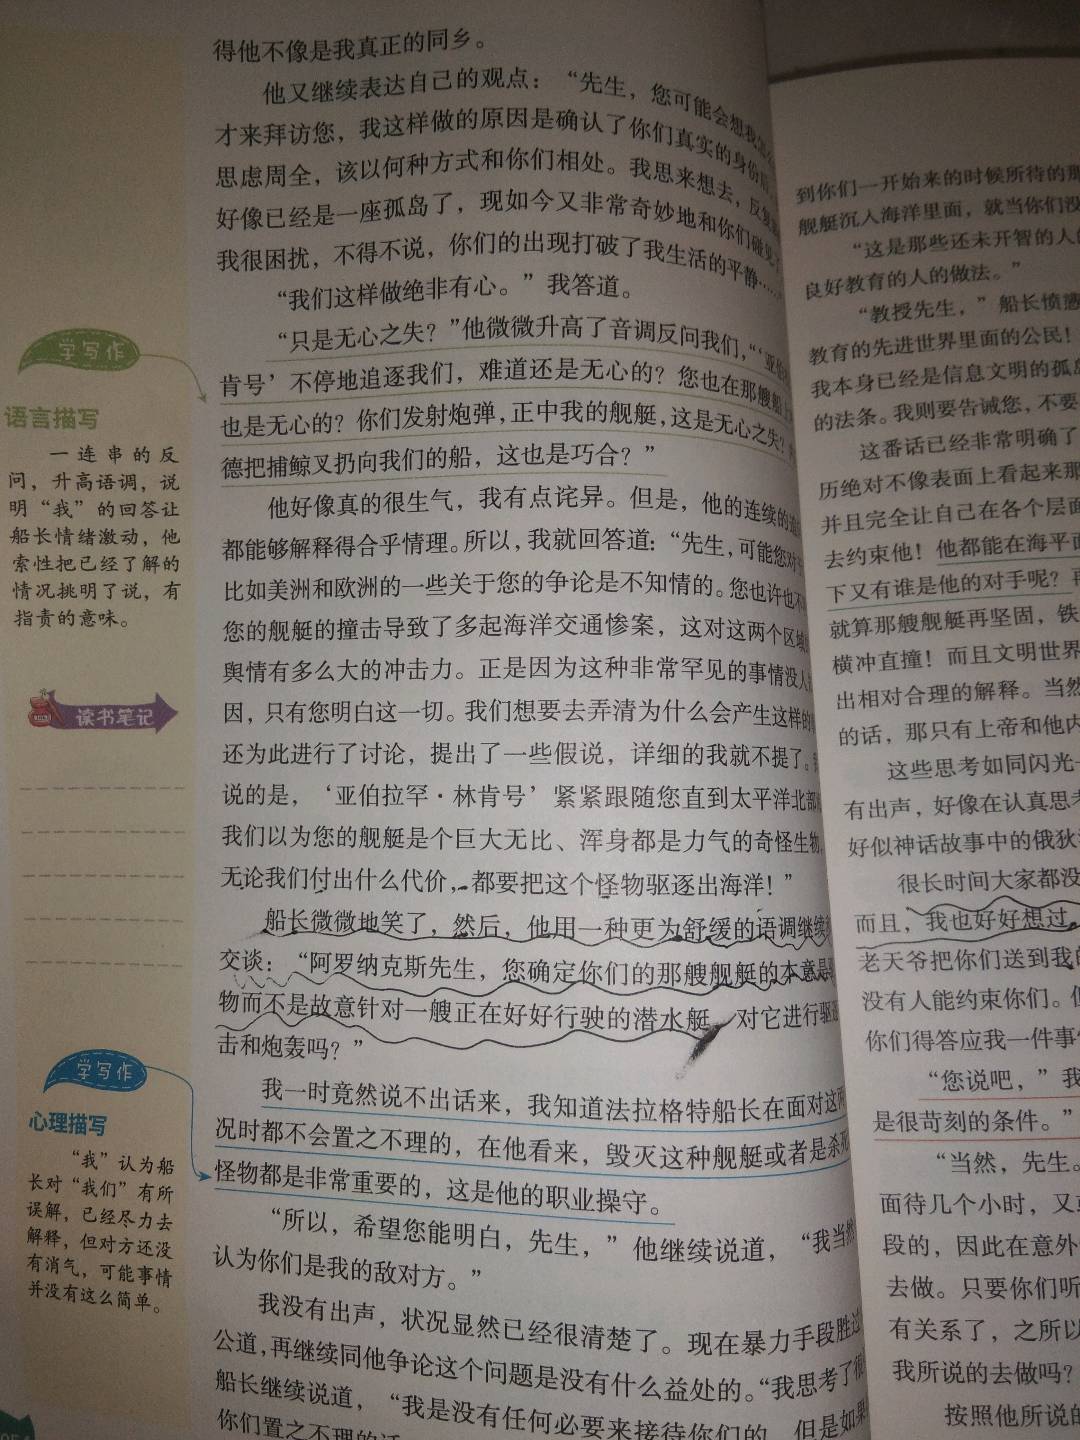 得他不像是我真正的同乡。
他又继续表达自己的观点：“先生，您可能会想我怎么
才来拜访您，我这样做的原因是确认了你们真实的身份后
思虑周全，该以何种方式和你们相处。我思来想去，反复
好像已经是一座孤岛了，现如今又非常奇妙地和你们碰见
我很困扰，不得不说，你们的出现打破了我生活的平静……
“我们这样做绝非有心。”我答道。
“只是无心之失？”他微微升高了音调反问我们，“‘亚伯
肯号’不停地追逐我们，难道还是无心的？您也在那艘船上
也是无心的？你们发射炮弹，正中我的舰艇，这是无心之失？
德把捕鲸叉扔向我们的船，这也是巧合？”
他好像真的很生气，我有点诧异。但是，他的连续的
都能够解释得合乎情理。所以，我就回答道：“先生，可能您对
比如美洲和欧洲的一些关于您的争论是不知情的。您也许也不
您的舰艇的撞击导致了多起海洋交通惨案，这对这两个区域
舆情有多么大的冲击力。正是因为这种非常罕见的事情没人
因，只有您明白这一切。我们想要去弄清为什么会产生这样的
还为此进行了讨论，提出了一些假说，详细的我就不提了。
说的是，‘亚伯拉罕·林肯号’紧紧跟随您直到太平洋北部
我们以为您的舰艇是个巨大无比、浑身都是力气的奇怪生物，
无论我们付出什么代价，都要把这个怪物驱逐出海洋！”
船长微微地笑了，然后，他用一种更为舒缓的语调继续
交谈：“阿罗纳克斯先生，您确定你们的那艘舰艇的本意是
物而不是故意针对一艘正在好好行驶的潜水艇，对它进行驱逐
击和炮轰吗？”
我一时竟然说不出话来，我知道法拉格特船长在面对这两
况时都不会置之不理的，在他看来，毁灭这种舰艇或者是杀死
怪物都是非常重要的，这是他的职业操守。
“所以，希望您能明白，先生，”他继续说道，“我当然
认为你们是我的敌对方。”
我没有出声，状况显然已经很清楚了。现在暴力手段胜过
公道，再继续同他争论这个问题是没有什么益处的。“我思考了很
船长继续说道，“我是没有任何必要来接待你们的，但是如果
你们置之不理的话
学写作
语言描写
一连串的反
问，升高语调，说
明“我”的回答让
船长情绪激动，他
索性把已经了解的
情况挑明了说，有
指责的意味。
读书笔记
学写作
心理描写
“我”认为船
长对“我们”有所
误解，已经尽力去
解释，但对方还没
有消气，可能事情
并没有这么简单。
到你们一开始来的时候所待的那
舰艇沉入海洋里面，就当你们没
“这是那些还未开智的人的
良好教育的人的做法。”
“教授先生，”船长愤懑
教育的先进世界里面的公民！
我本身已经是信息文明的孤岛
的法条。我则要告诫您，不要
这番话已经非常明确了
历绝对不像表面上看起来那
并且完全让自己在各个层面
去约束他！他都能在海平面
下又有谁是他的对手呢？再
就算那艘舰艇再坚固，铁
横冲直撞！而且文明世界
出相对合理的解释。当然
的话，那只有上帝和他内
这些思考如同闪光一
有出声，好像在认真思考
好似神话故事中的俄狄
很长时间大家都没
而且，我也好好想过，
老天爷把你们送到我的
没有人能约束你们。但
你们得答应我一件事
“您说吧，”我
是很苛刻的条件。”
“当然，先生。
面待几个小时，又或
段的，因此在意外
去做。只要你们听
有关系了，之所以
我所说的去做吗？
按照他所说的